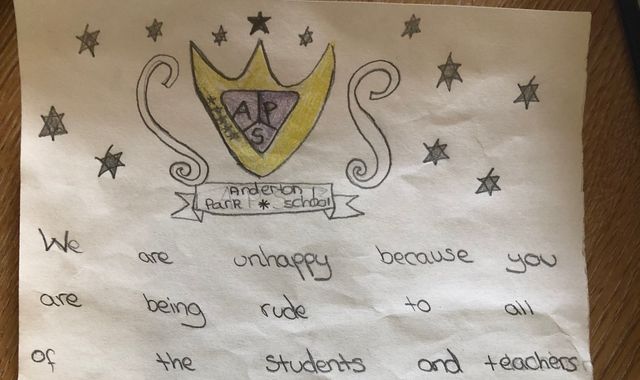 A P
S
Anderton
Park * School
We are unhappy because you
are being rude to all
of the students and teachers